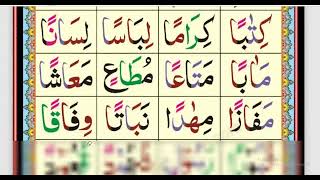 كِتٰبًا كِرَامًا لِبَاسًا لِسَانًا
مَاٰبًا مَتَاعًا مُطَاعٍ مَعَاشًا
مَفَازًا مِهٰدًا نَبَاتًا وِفَاقًا